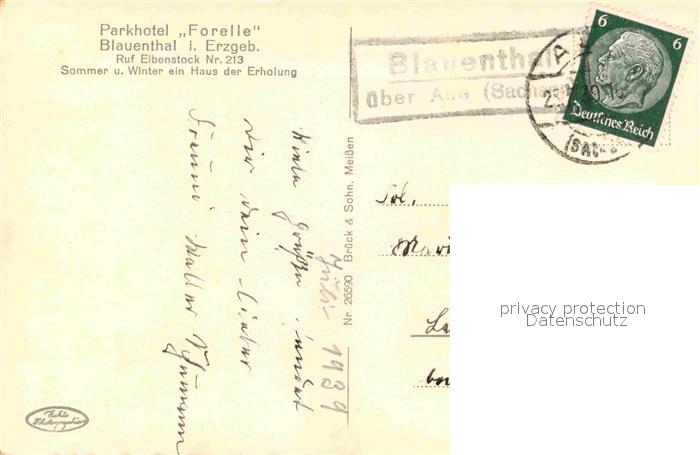 Parkhotel „Forelle"
Blauenthal i. Erzgeb.
Ruf Eibenstock Nr. 213
Sommer u. Winter ein Haus der Erholung
Blauenthal
über Aue (Sachsen)
6 6
Deutsches Reich
Viele Grüße sendet
Dir Dein lieber
Freund Walter
Juli 1939
Nr. 26590 Brück & Sohn, Meißen
Echte
Photographie
privacy protection
Datenschutz